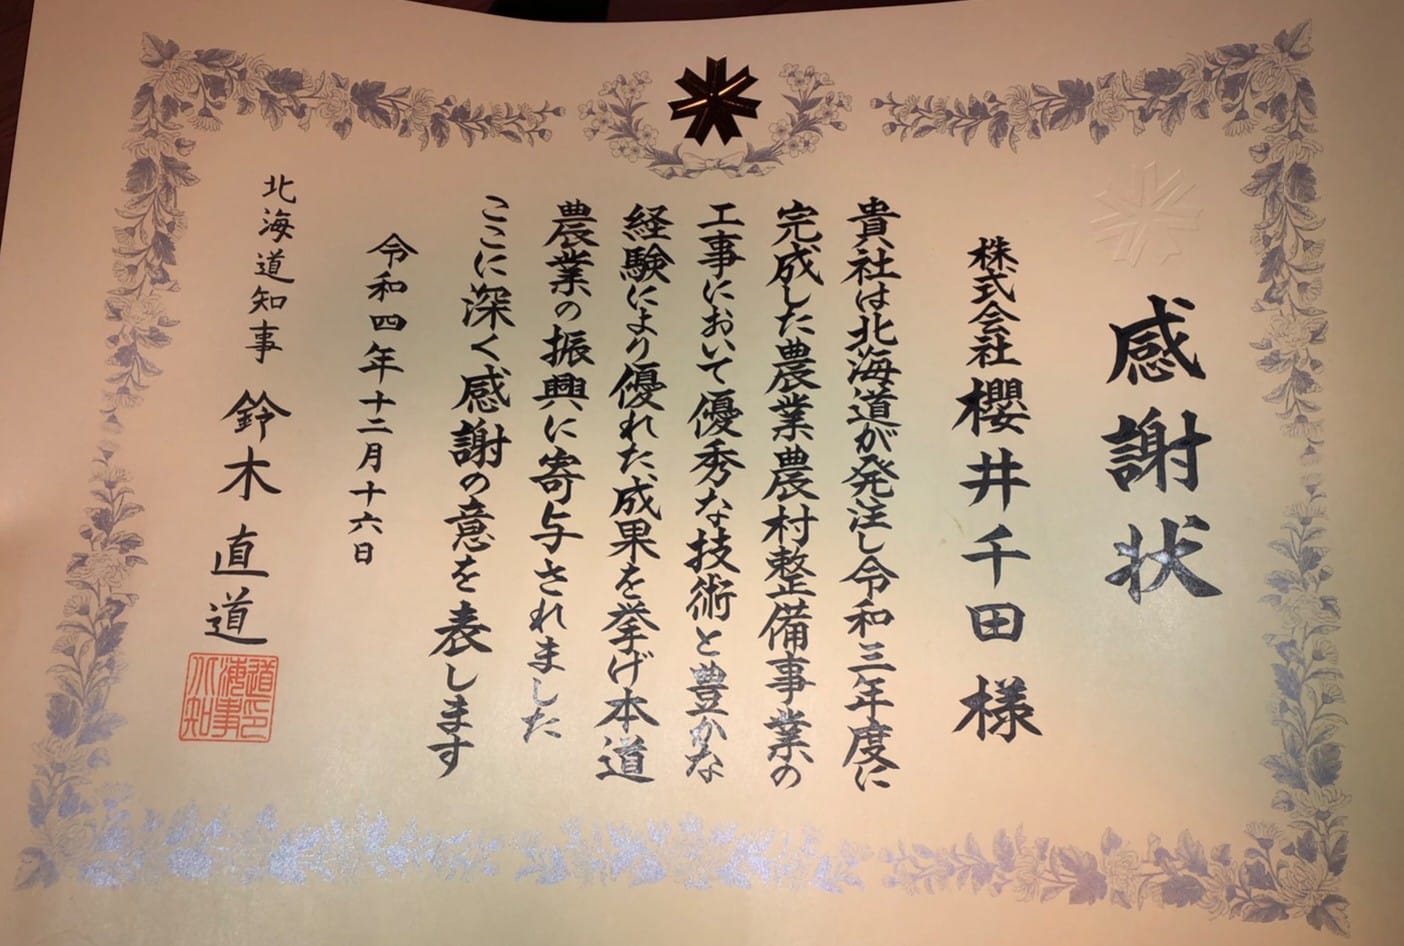 感謝状
株式会社 櫻井千田 様
貴社は北海道が発注し令和三年度に
完成した農業農村整備事業の
工事において優秀な技術と豊かな
経験により優れた成果を挙げ本道
農業の振興に寄与されました
ここに深く感謝の意を表します
令和四年十二月十六日
北海道知事 鈴木直道